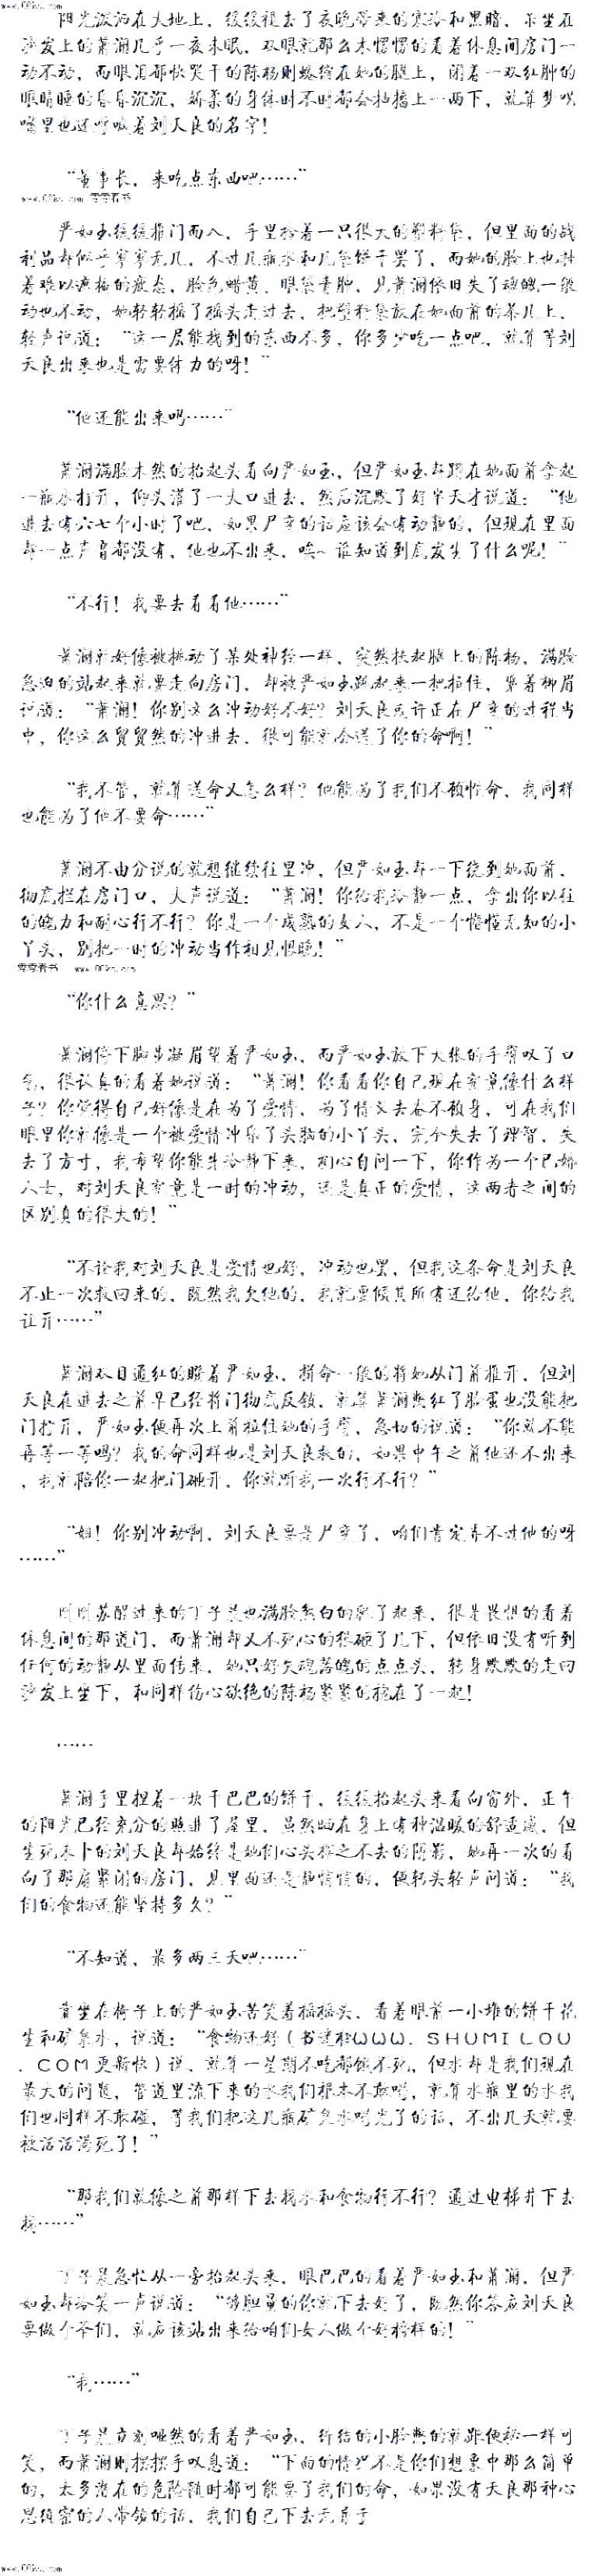 阳光洒满在大地上，缓缓褪去了夜晚带来的寒冷和黑暗，呆坐在
沙发上的萧澜几乎一夜未眠，双眼就那么木愣愣的看着休息间房门一
动不动，而眼泪都快哭干的陈杨则蜷缩在她的腿上，闭着一双红肿的
眼睛睡的昏昏沉沉，娇柔的身体时不时都会抽搐上一两下，就算梦呓
嘴里也还呼喊着刘天良的名字！
“董事长，来吃点东西吧……”
严如玉缓缓推门而入，手里拎着一只很大的塑料袋，但里面的战
利品却似乎寥寥无几，不过几瓶水和几袋饼干罢了，而她的脸上也挂
着难以遮掩的疲态，脸色蜡黄、眼袋青肿，见萧澜依旧失了魂魄一般
动也不动，她轻轻摇了摇头走过去，把塑料袋放在她面前的茶几上，
轻声说道：“这一层能找到的东西不多，你多少吃一点吧，就算等刘
天良出来也是需要体力的呀！”
“他还能出来吗……”
萧澜满脸木然的抬起头看向严如玉，但严如玉却蹲在她面前拿起
一瓶水打开，仰头灌了一大口进去，然后沉默了好半天才说道：“他
进去有六七个小时了吧，如果尸变的话应该会有动静的，但现在里面
却一点声音都没有，他也不出来，唉~谁知道到底发生了什么呢！”
“不行！我要去看看他……”
萧澜就好像被挑动了某处神经一样，突然扶起腿上的陈杨，满脸
急迫的站起来就要走向房门，却被严如玉跳起来一把拉住，紧着柳眉
说道：“萧澜！你别这么冲动好不好？刘天良或许正在尸变的过程当
中，你这么贸贸然的冲进去，很可能就会送了你的命啊！”
“我不管，就算送命又怎么样？他能为了我们不顾性命，我同样
也能为了他不要命……”
萧澜不由分说的就想继续往里冲，但严如玉却一下绕到她面前，
彻底拦在房门口，大声说道：“萧澜！你给我冷静一点，拿出你以往
的魄力和耐心行不行？你是一个成熟的女人，不是一个懵懂无知的小
丫头，别把一时的冲动当作相见恨晚！”
“你什么意思？”
萧澜停下脚步凝眉望着严如玉，而严如玉放下大张的手臂叹了口
气，很认真的看着她说道：“萧澜！你看看你自己现在究竟像什么样
子？你觉得自己好像是在为了爱情，为了情义去奋不顾身，可在我们
眼里你就像是一个被爱情冲昏了头脑的小丫头，完全失去了理智，失
去了方寸，我希望你能先冷静下来，扪心自问一下，你作为一个已婚
人士，对刘天良究竟是一时的冲动，还是真正的爱情，这两者之间的
区别真的很大的！”
“不论我对刘天良是爱情也好，冲动也罢，但我这条命是刘天良
不止一次救回来的，既然我欠他的，我就要倾其所有还给他，你给我
让开……”
萧澜双目通红的瞪着严如玉，拼命一般的将她从门前推开，但刘
天良在进去之前早已经将门彻底反锁，就算萧澜憋红了脸蛋也没能把
门拧开，严如玉便再次上前拉住她的手臂，急切的说道：“你就不能
再等一等吗？我的命同样也是刘天良救的，如果中午之前他还不出来
，我就陪你一起把门砸开，你就听我一次行不行？”
“姐！你别冲动啊，刘天良要是尸变了，咱们肯定弄不过他的呀
……”
刚刚苏醒过来的丁子晨也满脸煞白的爬了起来，很是畏惧的看着
休息间的那道门，而萧澜却又不死心的狠砸了几下，但依旧没有听到
任何的动静从里面传来，她只好失魂落魄的点点头，转身默默的走回
沙发上坐下，和同样伤心欲绝的陈杨紧紧的抱在了一起！
……
萧澜手里捏着一块干巴巴的饼干，缓缓抬起头来看向窗外，正午
的阳光已经充分的照进了屋里，虽然晒在身上有种温暖的舒适感，但
生死未卜的刘天良却始终是她们心头挥之不去的阴影，她再一次的看
向了那扇紧闭的房门，见里面还是静悄悄的，便转头轻声问道：“我
们的食物还能坚持多久？”
“不知道，最多两三天吧……”
靠坐在椅子上的严如玉苦笑着摇摇头，看着眼前一小堆的饼干花
生和矿泉水，说道：“食物还好（书迷楼ＷＷＷ．ＳＨＵＭＩＬＯＵ
．ＣＯＭ更新快）说，就算一星期不吃都饿不死，但水却是我们现在
最大的问题，管道里流下来的水我们根本不敢喝，就算水瓶里的水我
们也同样不敢碰，等我们把这几瓶矿泉水喝光了的话，不出几天就要
被活活渴死了！”
“那我们就像之前那样下去找水和食物行不行？通过电梯井下去
找……”
丁子晨急忙从一旁抬起头来，眼巴巴的看着严如玉和萧澜，但严
如玉却冷笑一声说道：“够胆量的你就下去好了，既然你答应刘天良
要做个爷们，就应该站出来给咱们女人做个好榜样的！”
“我……”
丁子晨立刻哑然的看着严如玉，纠结的小脸憋的就跟便秘一样可
笑，而萧澜则摆摆手叹息道：“下面的情况不是你们想象中那么简单
的，太多潜在的危险随时都可能要了我们的命，如果没有天良那种心
思缜密的人带领的话，我们自己下去无异于